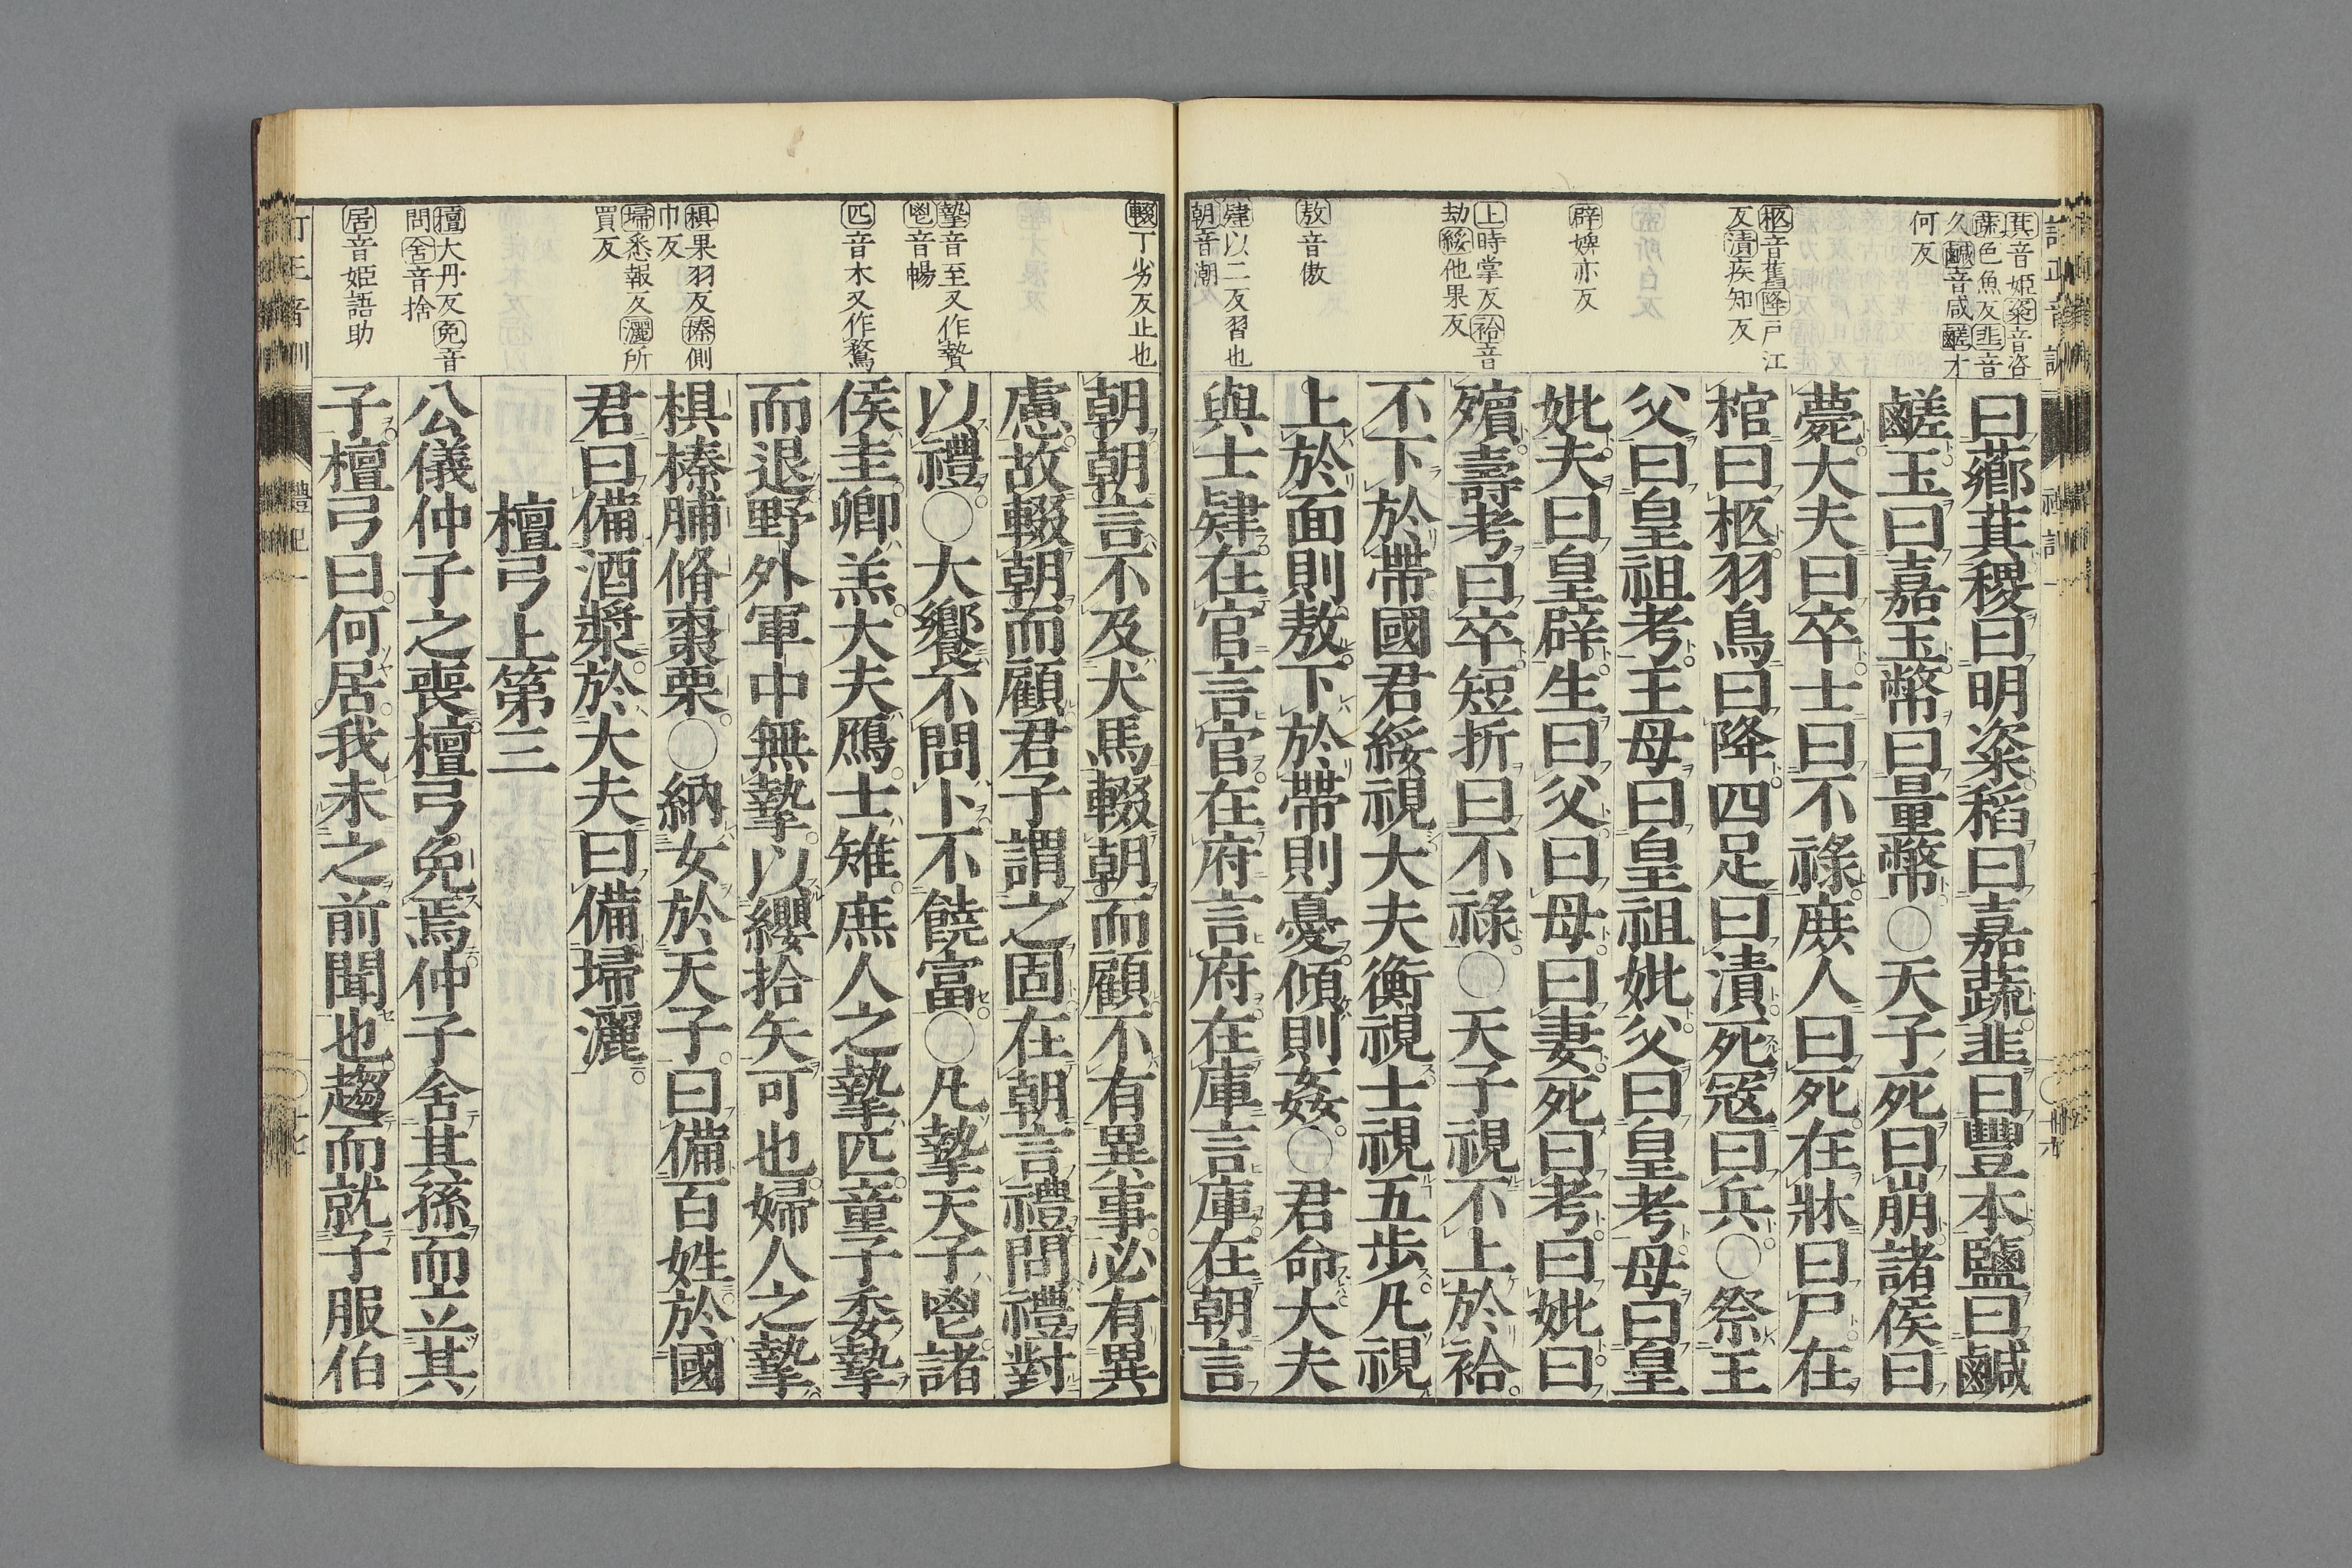 萁音姬粢音咨
蔬色魚反韭音
久鹹音咸鹺才
何反
柩音舊降戶江
反漬疾知反
辟婢亦反
上時掌反袷音
劫綏他果反
敖音傲
肄以二反習也
朝音潮
曰薌萁稷曰明粢稻曰嘉蔬韭曰豐本鹽曰鹹
鹺玉曰嘉玉幣曰量幣○天子死曰崩諸侯曰
薨大夫曰卒士曰不祿庶人曰死在牀曰尸在
棺曰柩羽鳥曰降四足曰漬死寇曰兵○祭王
父曰皇祖考王母曰皇祖妣父曰皇考母曰皇
妣夫曰皇辟生曰父曰母曰妻死曰考曰妣曰
殯壽考曰卒短折曰不祿○天子視不上於袷
不下於帶國君綏視大夫衡視士視五步凡視
上於面則敖下於帶則憂傾則姦○君命大夫
與士肄在官言官在府言府在庫言庫在朝言
輟丁劣反止也
摯音至又作贄
鬯音暢
匹音木又作鶩
椇果羽反榛側
巾反
埽悉報反灑所
買反
檀大丹反免音
問舍音捨
居音姬語助
朝朝言不及犬馬輟朝而顧不有異事必有異
慮故輟朝而顧君子謂之固在朝言禮問禮對
以禮○大饗不問卜不饒富○凡摯天子鬯諸
侯圭卿羔大夫鴈士雉庶人之摯匹童子委摯
而退野外軍中無摯以纓拾矢可也婦人之摯
椇榛脯脩棗栗○納女於天子曰備百姓於國
君曰備酒漿於大夫曰備埽灑
檀弓上第三
公儀仲子之喪檀弓免焉仲子舍其孫而立其
子檀弓曰何居我未之前聞也趨而就子服伯